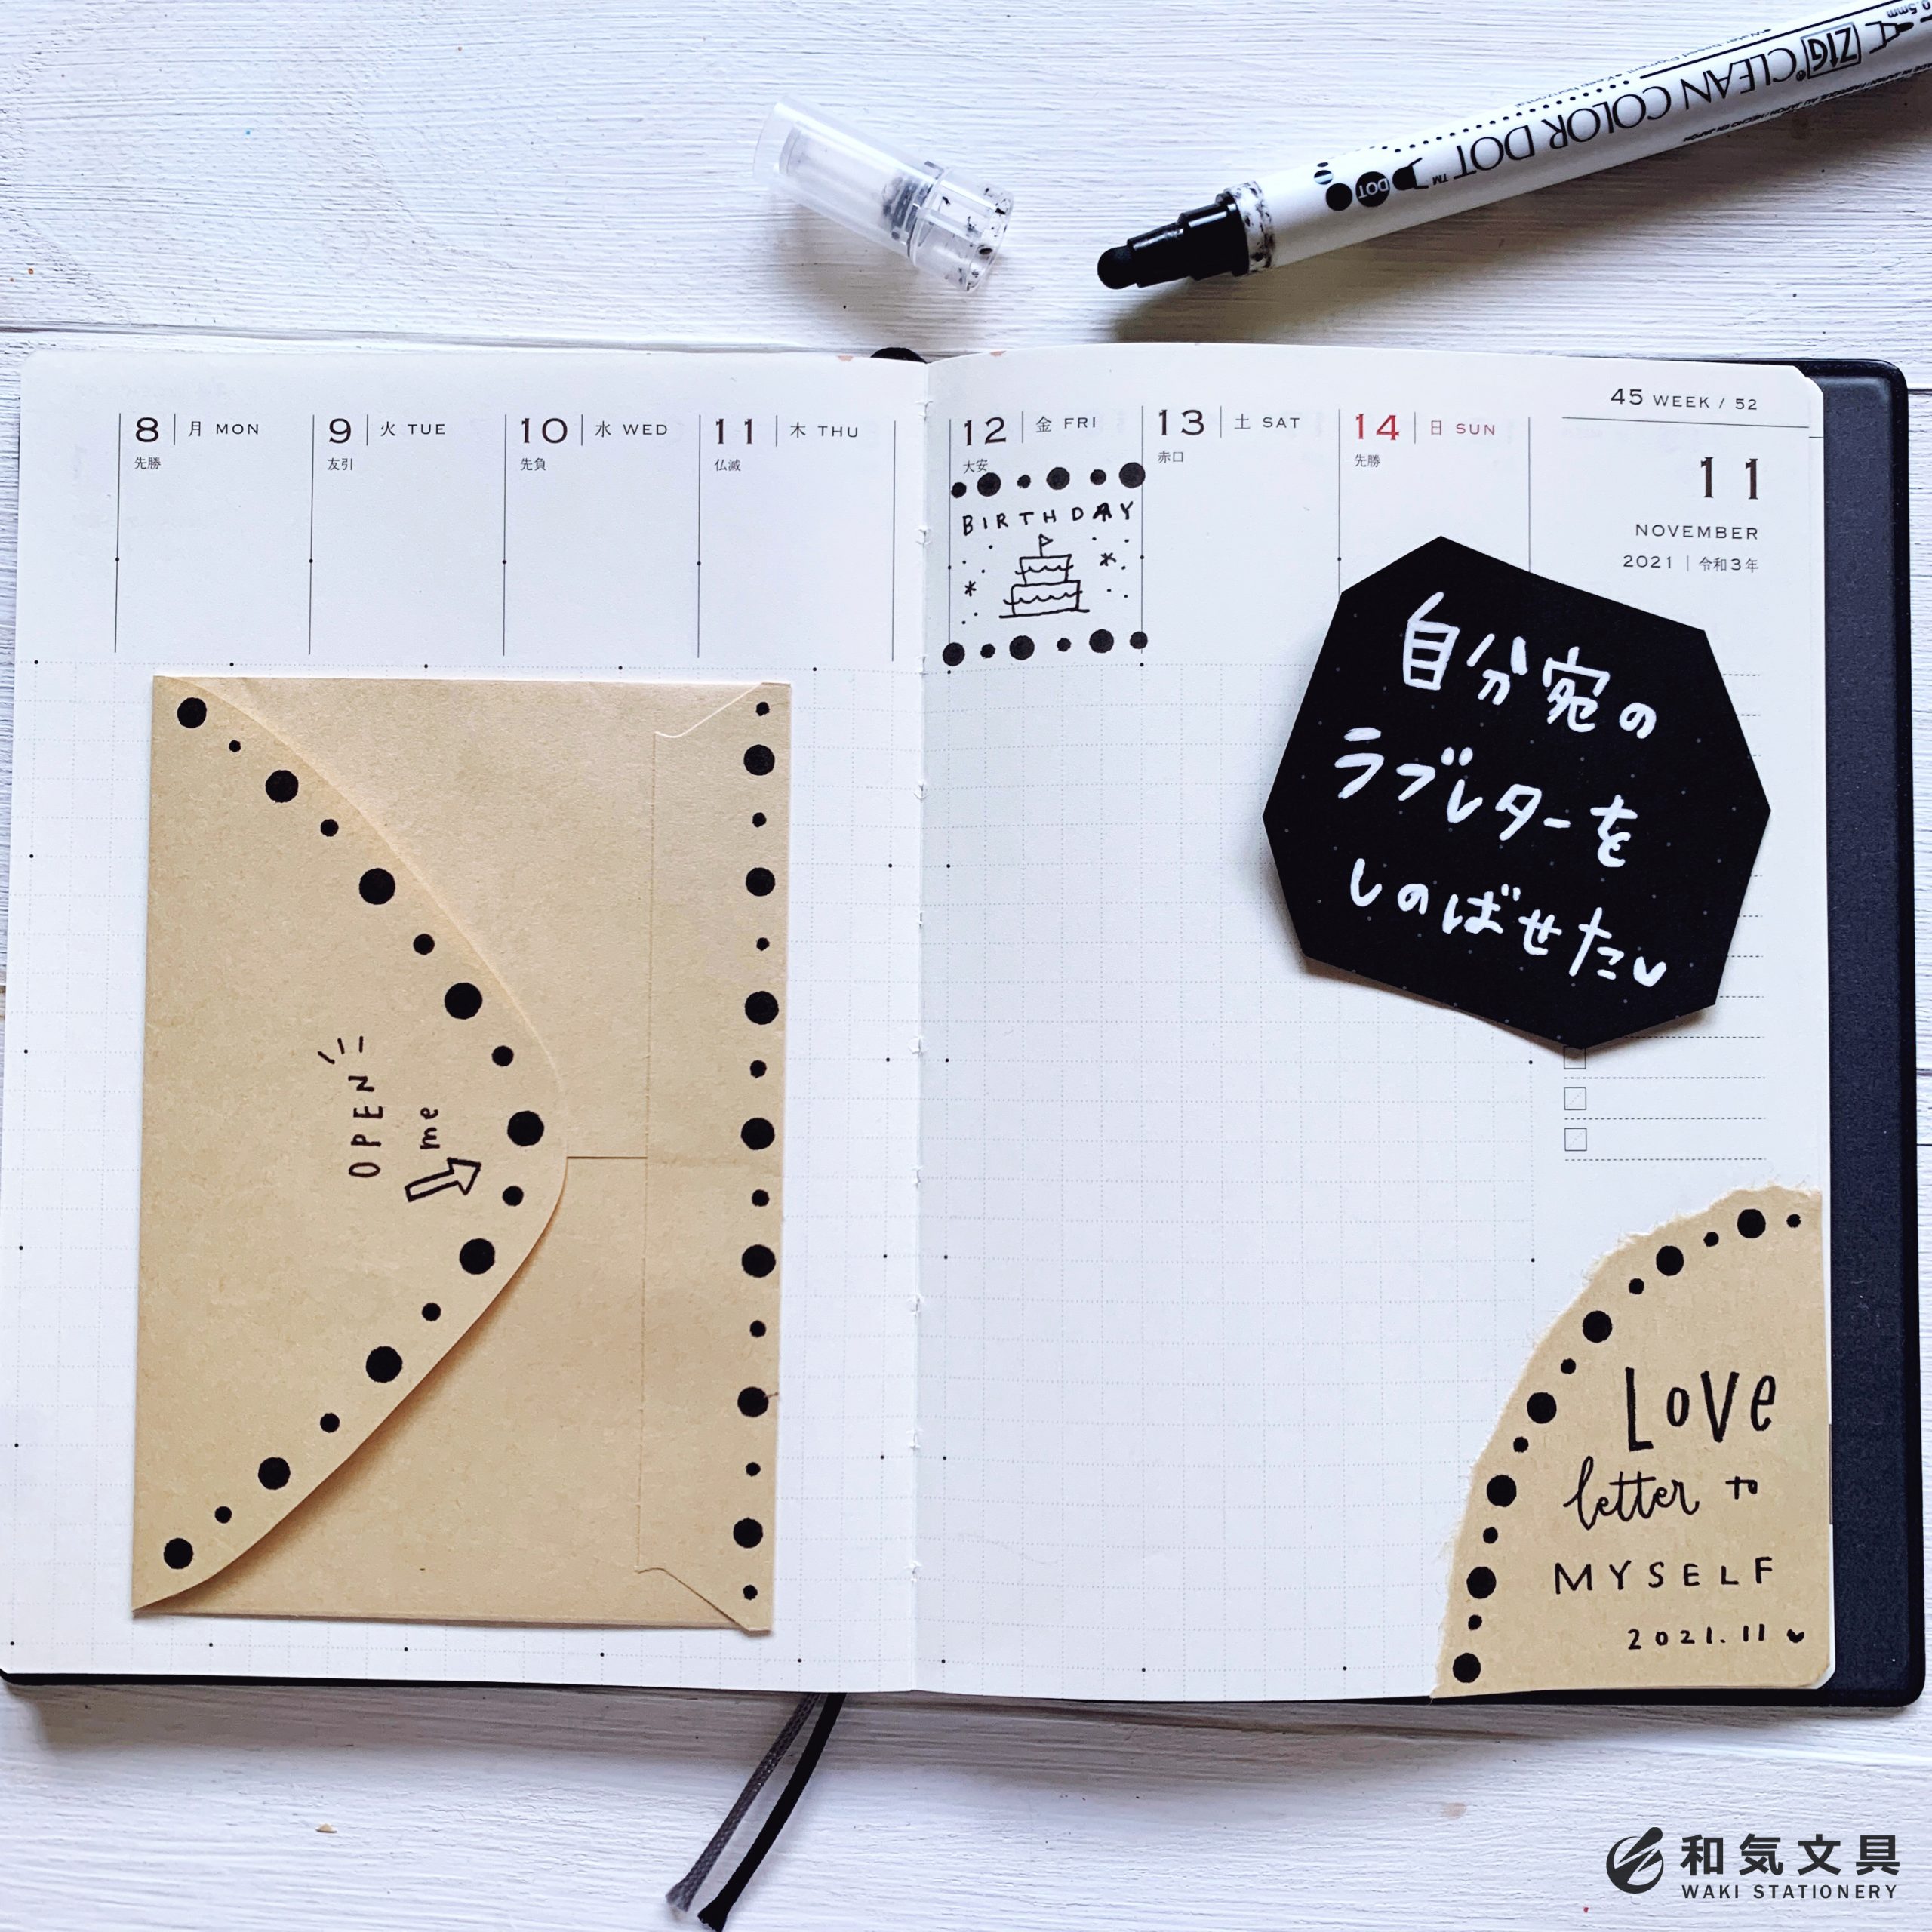 ZIG CLEAN COLOR DOT™
DOT
0.5mm
8 月 MON
先勝
9 火 TUE
友引
10 水 WED
先負
11 木 THU
仏滅
12 金 FRI
大安
13 土 SAT
赤口
14 日 SUN
先勝
45 WEEK / 52
11
NOVEMBER
2021 | 令和3年
BIRTHDAY
自分宛の
ラブレターを
しのばせた
OPEN
me
LOVE
letter to
MYSELF
2021.11
和気文具
WAKI STATIONERY